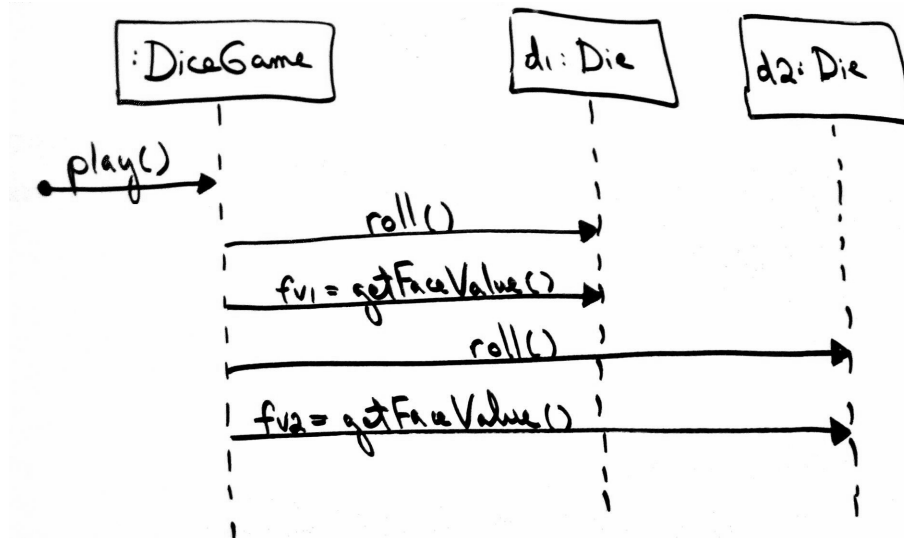 :DiceGame
d1:Die
d2:Die
play()
roll()
fv1 = getFaceValue()
roll()
fv2 = getFaceValue()